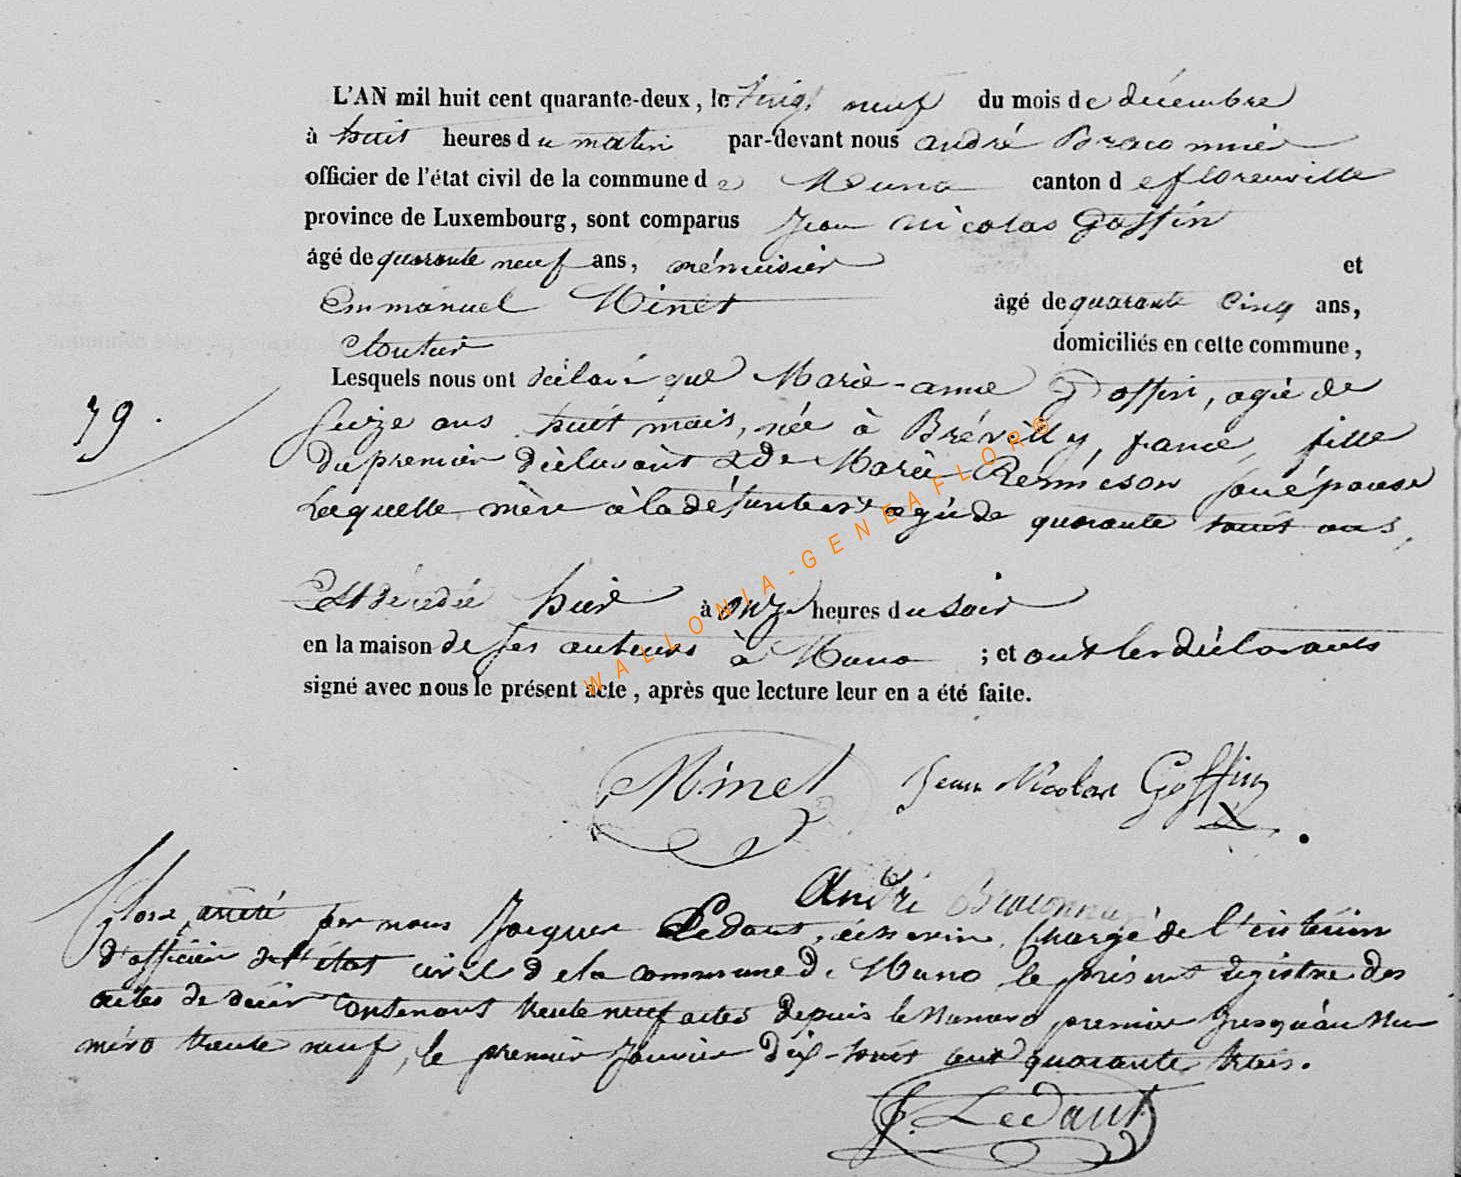 L'AN mil huit cent quarante-deux, le vingt neuf du mois de décembre
à huit heures du matin par-devant nous andré Braconnier
officier de l'état civil de la commune de Muno canton de florenville
province de Luxembourg, sont comparus Jean nicolas Goffin
âgé de quarante neuf ans, ménuisier et
Emmanuel Minet âgé de quarante cinq ans,
Cloutier domiciliés en cette commune,
Lesquels nous ont déclaré que Marie-anne Goffin, agée de
79.
seize ans huit mois, née à Brévilly, france, fille
du premier déclarant & de Marie Remieson son épouse
laquelle mère à la défunte est agée de quarante huit ans,
Est décédée hier à onze heures du soir
en la maison de ses auteurs à Muno ; et ont les déclarants
signé avec nous le présent acte, après que lecture leur en a été faite.
WALLONIA-GENEAFLOR®
Minet Jean Nicolas Goffin
André Braconnier
Clos, arrêté par nous Jacques Ledant, échevin, chargé de l'intérim
d'officier de l'état civil de la commune de Muno le présent registre des
actes de décès contenant trente neuf actes depuis le numéro premier jusqu'au nu
méro trente neuf, le premier Janvier dix-huit cent quarante trois.
J. Ledant